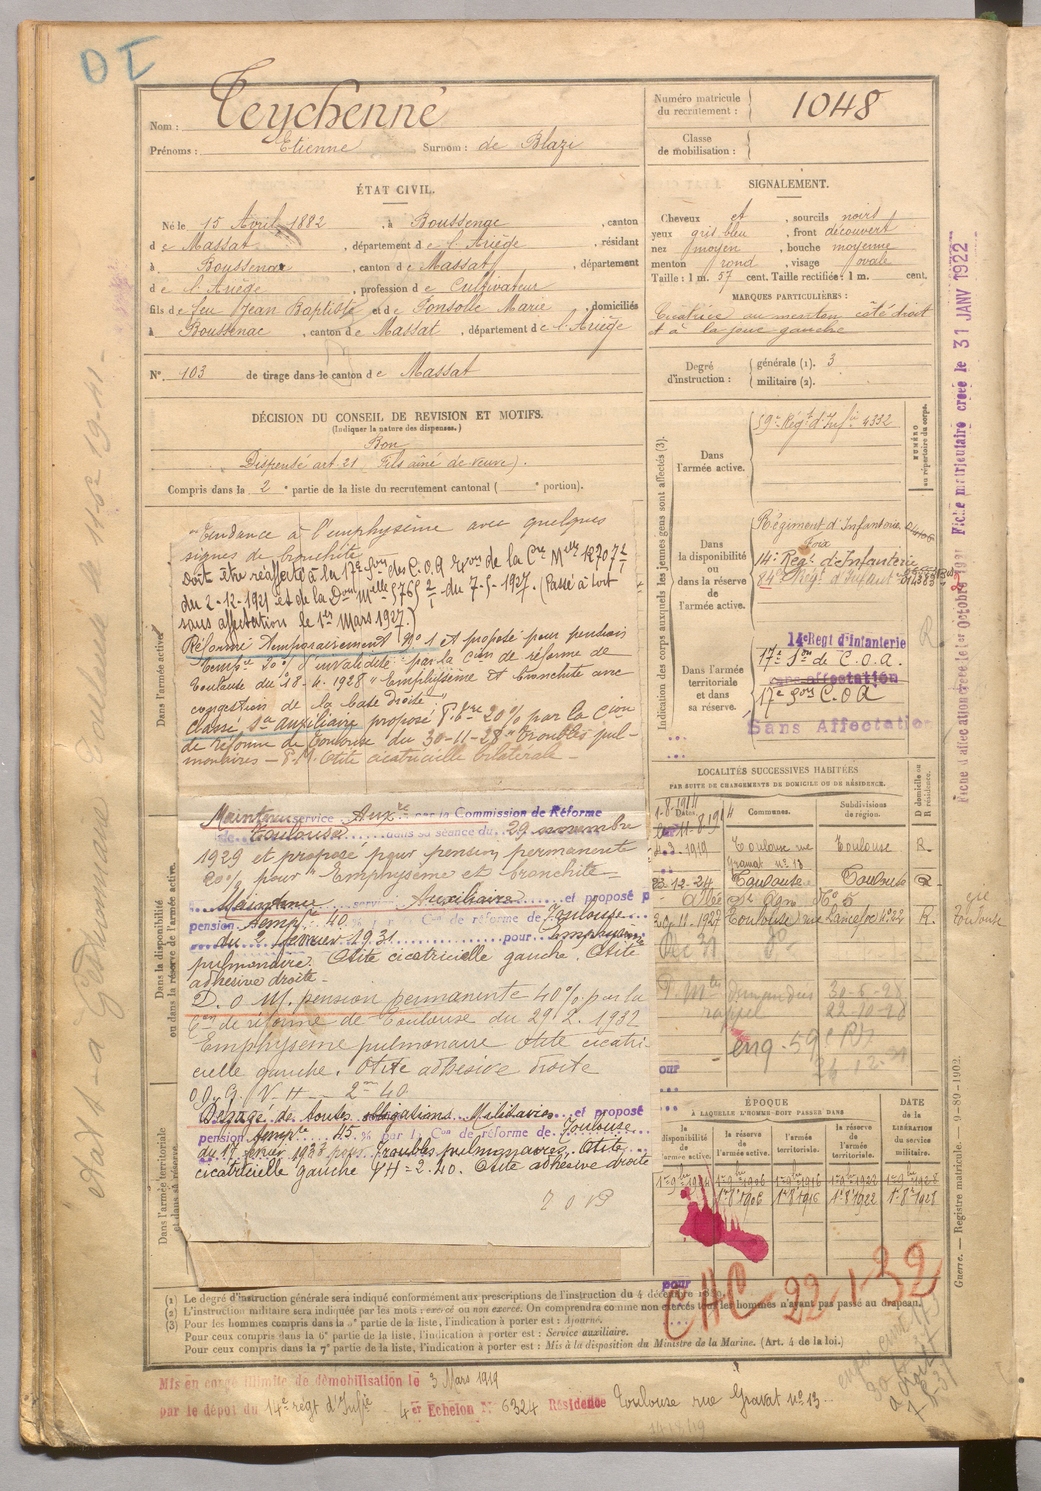 D I
Nom : Teychenné
Prénoms : Etienne Surnom : de Blazi
Numéro matricule du recrutement : 1048
Classe de mobilisation :
ÉTAT CIVIL.
Né le 15 Avril 1882, à Boussenac, canton
de Massat, département de l'Ariège, résidant
à Boussenac, canton de Massat, département
de l'Ariège, profession de Cultivateur
fils de feu Jean Baptiste et de Fonsolle Marie, domiciliés
à Boussenac, canton de Massat, département de l'Ariège
N° 103 de tirage dans le canton de Massat
SIGNALEMENT.
Cheveux et, sourcils noirs
yeux gris bleu, front découvert
nez moyen, bouche moyenne
menton rond, visage ovale
Taille : 1 m. 57 cent. Taille rectifiée : 1 m. cent.
MARQUES PARTICULIÈRES :
Cicatrice au menton côté droit
et à la joue gauche
Degré d'instruction : générale (1). 3
militaire (2).
DÉCISION DU CONSEIL DE REVISION ET MOTIFS.
(Indiquer la nature des dispenses.)
Bon
Dispensé art. 21 (Fils aîné de veuve).
Compris dans la 2e partie de la liste du recrutement cantonal ( e portion).
"Tendance à l'emphysème avec quelques
signes de bronchite
Doit être réaffecté à la 17e Son des C.O.A
du 2-12-1921 et de la du 7-5-1927. (Passé à tort
sans affectation le 1er Mars 1927.)
Réformé temporairement N° 1 et proposé pour pension
Tempre 20% d'invalidité par la Cion de réforme de
Toulouse du 18-4-1928 "Emphysème et bronchite avec
congestion de la base droite."
Classé Sce auxiliaire proposé P. tre 20% par la Cion
de réforme de Toulouse du 30-11-28 "troubles pul-
monaires - P.M. Otite cicatricielle bilatérale -
Maintenu service Auxre par la Commission de Réforme
de Toulouse dans sa séance du 29 novembre
1929 et proposé pour pension permanente
20% pour "Emphysème et bronchite =
Maintenu service Auxiliaire et proposé p
pension tempre 40 % par la Con de réforme de Toulouse
du 2 février 1931 pour Emphysème
pulmonaire. Otite cicatricielle gauche. Otite
adhésive droite -
D. O. M. pension permanente 40% par la
Con de réforme de Toulouse du 29.2.1932
Emphysème pulmonaire Otite cicatri-
cielle gauche. Otite adhésive droite
O.D.G. V.H - 2m 40
Dégagé de toutes obligations Militaires et proposé
pension tempre 45 % par la Con de réforme de Toulouse
du 17 février 1933 pour Troubles pulmonaires. Otite
cicatricielle gauche VH = 2.40. Otite adhésive droite
Dans l'armée active.
Dans la disponibilité ou dans la réserve de l'armée active.
Dans l'armée territoriale et dans sa réserve.
Indication des corps auxquels les jeunes gens sont affectés (3).
NUMÉRO au répertoire du corps.
Dans l'armée active. 59e Régt d'Infie 4332
Dans la disponibilité ou dans la réserve de l'armée active.
Régiment d'Infanterie
Foix
14e Régt d'Infanterie
Dans l'armée territoriale et dans sa réserve.
14e Regt d'Infanterie
17e Son de C.O.A.
sans affectation
17e Son C.O.A
Sans Affectatio
LOCALITÉS SUCCESSIVES HABITÉES
PAR SUITE DE CHANGEMENTS DE DOMICILE OU DE RÉSIDENCE.
Dates. Communes. Subdivisions de région. D domicile ou R résidence.
1-8-1914
4-3-1919 Toulouse rue Gramat n° 13 Toulouse R.
23-12-24 Toulouse Toulouse R
Allée St Agne N° 5
30.11.1927 Toulouse, rue Lancefoc n° 22 R.
demandées 30-6-28
rappel 22-10-28
enq. 59e
ÉPOQUE
À LAQUELLE L'HOMME DOIT PASSER DANS
la disponibilité de l'armée active. la réserve de l'armée active. l'armée territoriale. la réserve de l'armée territoriale. DATE de la LIBÉRATION du service militaire.
1er 8bre 1906 1er 8bre 1916 1er 8bre 1922 1er 8bre 1928
pour
CHC - 22-1-32
(1) Le degré d'instruction générale sera indiqué conformément aux prescriptions de l'instruction du 4 décembre 1889.
(2) L'instruction militaire sera indiquée par les mots : exercé ou non exercé. On comprendra comme non exercés tous les hommes n'ayant pas passé au drapeau.
(3) Pour les hommes compris dans la 5e partie de la liste, l'indication à porter est : Ajourné.
Pour ceux compris dans la 6e partie de la liste, l'indication à porter est : Service auxiliaire.
Pour ceux compris dans la 7e partie de la liste, l'indication à porter est : Mis à la disposition du Ministre de la Marine. (Art. 4 de la loi.)
Mis en congé illimité de démobilisation le 3 Mars 1919
par le dépôt du 14e régt d'Infie 4er Echelon N° 6324 Résidence Toulouse rue Gravat n° 13
Fiche d'affectation créée le 1er Octobre 1921 Fiche matriculaire créée le 31 JANV 1922
Guerre. — Registre matricule. — 9-89-1902.